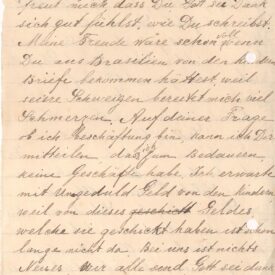 freut mich, dass Du, Gott sei Dank
sich gut fühlst, wie Du schreibst.
Meine Freude wäre schon voll wenn
Du aus Brasilien von der
Briefe bekommen hättest weil
seine Schweigen bereitet mich viel
Schmerzen. Auf deiner Frage
ob ich Beschäftung bin, kann ich Dir
mitteilen das ich zum Bedauern
keine Geschäfte habe. Ich erwarte
mit Ungeduld Geld von den Kindern
weil von dieses geschickt Geldes,
welche sie geschickt haben ist schon
lange nicht da. Bei uns ist nichts
Neues. Wir alle sind Gott sei dank